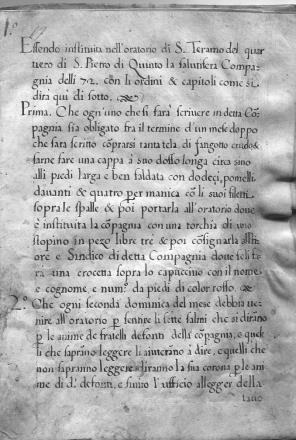 1.º
Essendo instituita nell'oratorio di S. Teramo del quar
tiero di S. Pietro di Quinto la salutifera Compa-
gnia delli 72. con li ordini & capitoli come si
dirà qui di sotto.
Prima. Che ogn'uno che si farà scrivere in detta Cõ-
pagnia sia obligato fra il termine d'un mese doppo
che sarà scritto cõprarsi tanta tela di fangotto crudo &
farne fare una cappa à suo dosso longa circa sino
alli piedi larga e ben faldata con dodeci pomelli
davanti & quattro per manica cõ li suoi filetti
sopra le spalle & poi portarla all'oratorio dove
è instituita la cõpagnia con una torchia di uno
stopino in pezo libre tre & poi cõsignarla all
ore e Sindico di detta Compagnia dove se li fa
rà una crocetta sopra lo capuccino con il nome
e cognome, e num.º da piedi di color rosso.
2.º Che ogni seconda dominica del mese debbia ve-
nire all'oratorio p sentire li sette salmi che si dirãno
p le anime de fratelli defonti della cõpagnia, e quel-
li che saprãno leggere li aiuterano à dire, e quelli che
non saprãno leggere dirãno la sua corona p le ani
me di d.ⁱ defonti, e finito l'ufficio allegger della